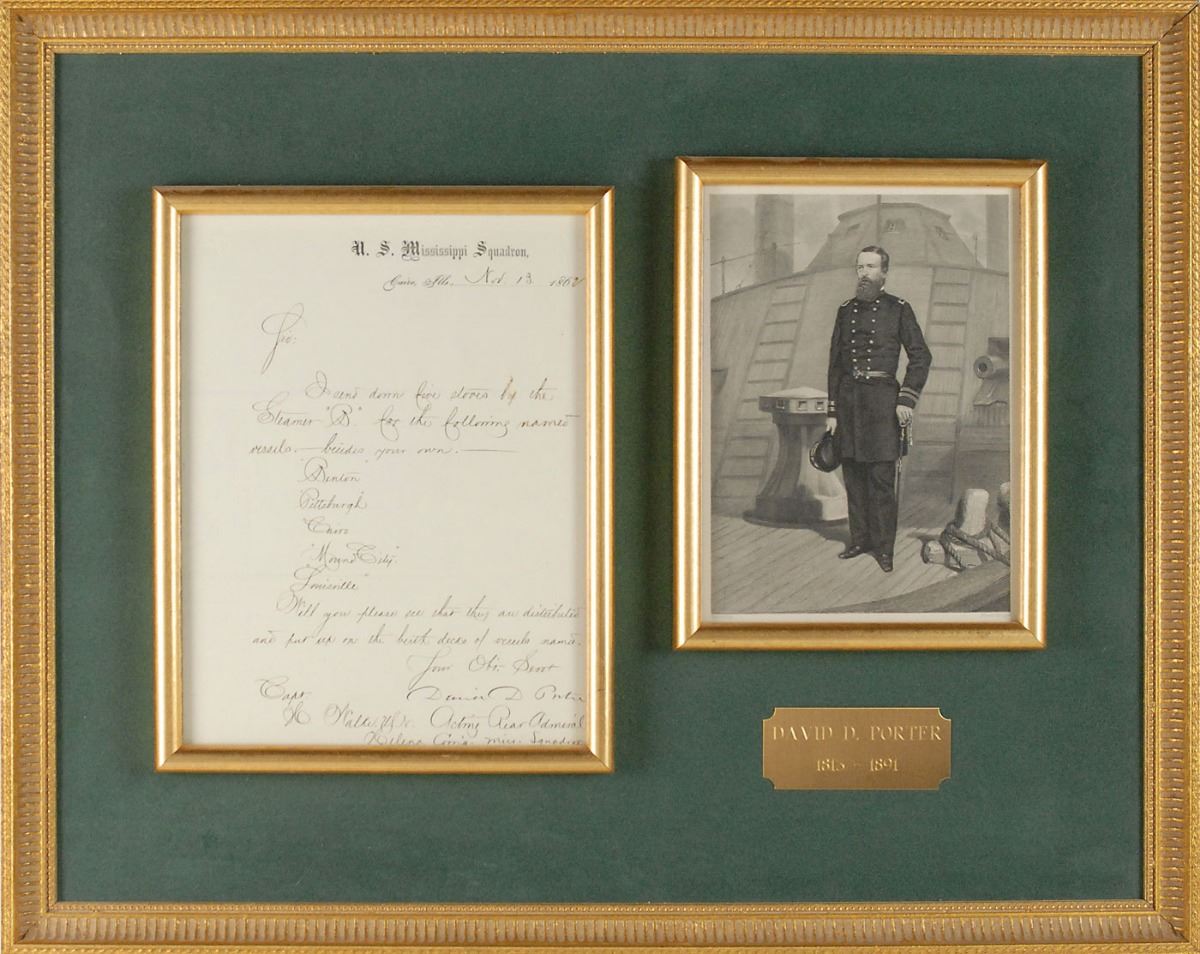 U. S. Mississippi Squadron,
Cairo, Ills., Nov. 13 1862
Sir:
I send down five stoves by the
Steamer "D" for the following named
vessels. — besides your own. —
"Benton"
Pittsburgh"
Cairo
"Mound City".
Louisville"
Will you please see that they are distributed
and put up on the berth decks of vessels named.
Your Obt. Servt
Capt David D Porter
H Walke Acting Rear Admiral
Helena Miss. Squadron
DAVID D. PORTER
1813 - 1891